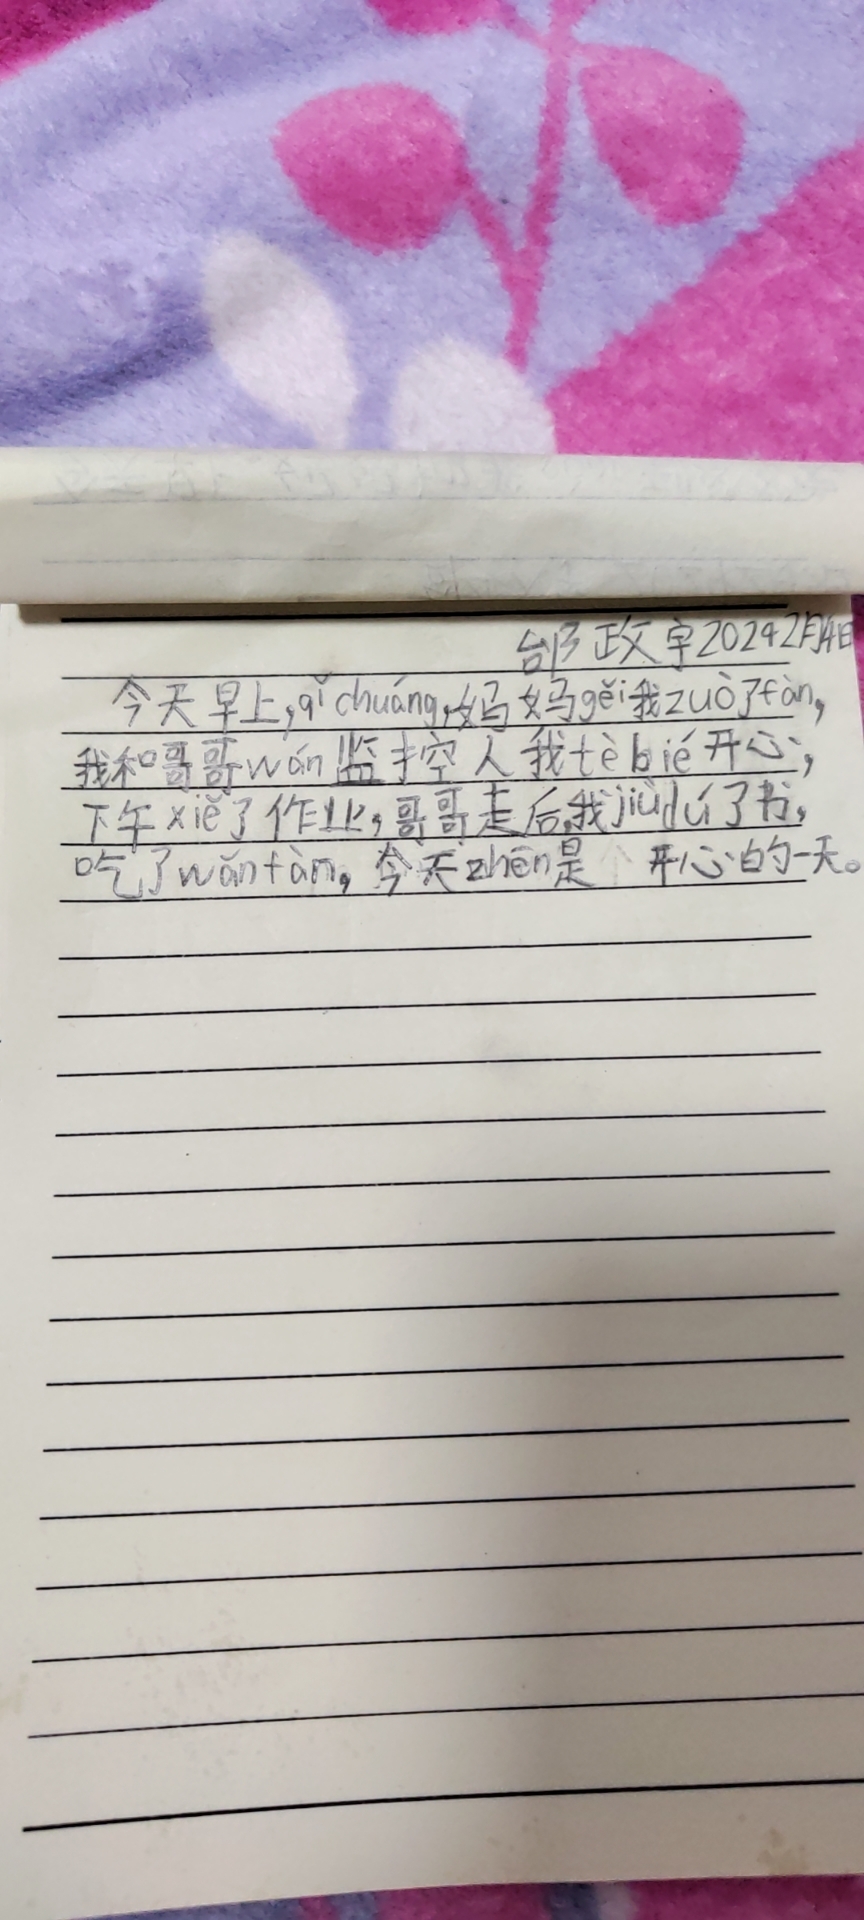 邰政宇2024 2月4日
今天早上,qǐ chuáng,妈妈gěi我zuò了fàn,
我和哥哥wán监控人我tè bié开心,
下午xiě了作业,哥哥走后,我jiù dú了书,
吃了wǎn fàn,今天zhēn是 个 开心的一天。